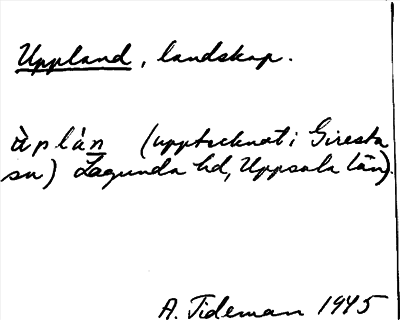 Uppland, landskap.
àplàn (upptecknat i Giresta
sn) Lagunda hd, Uppsala län).
A. Tideman 1945